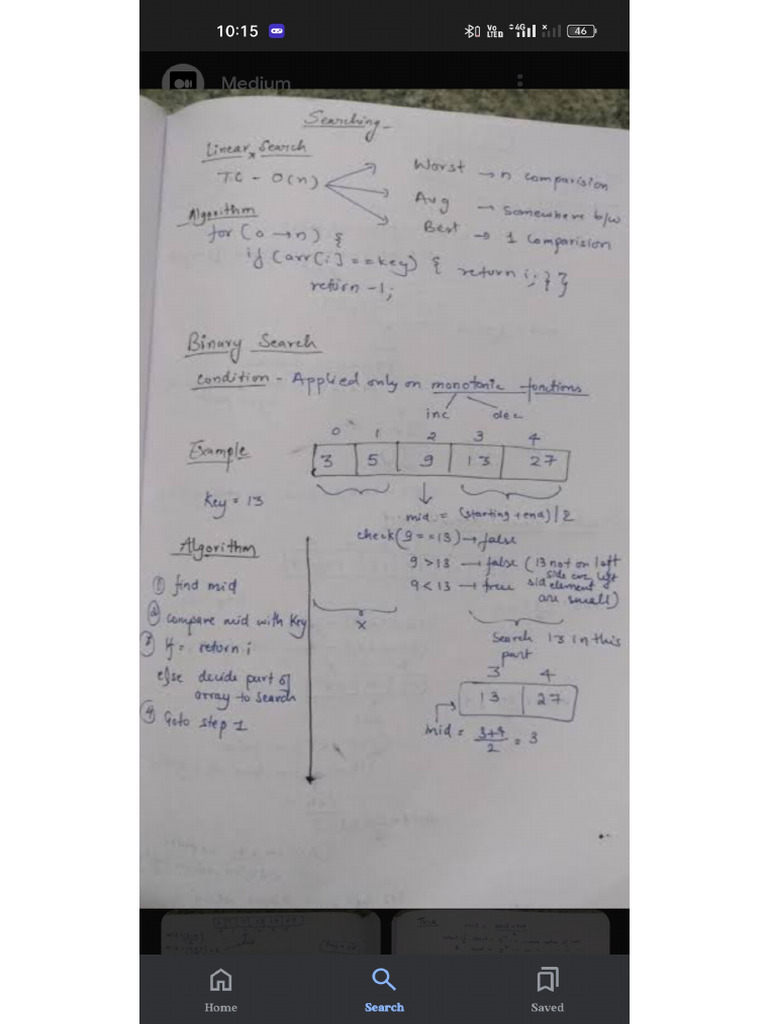 10:15
Vo LTE 4G 46
Medium
Searching -
Linear Search
T.C - O(n)
Worst → n comparision
Avg → Somewhere b/w
Best → 1 Comparision
Algorithm
for (0 → n) {
if (arr[i] == key) { return i; } }
return -1;
Binary Search
Condition - Applied only on monotonic functions
inc dec
0 1 2 3 4
Example
3 5 9 13 27
Key = 13
mid = (starting + end) / 2
check (9 == 13) → false
Algorithm
9 > 13 → false (13 not on left
side
9 < 13 → true
element
are small)
① find mid
② compare mid with key
③ if = return i
else decide part of
array to search
④ Goto step 1
x
Search 13 in this
part
3 4
13 27
mid = 3+4 / 2 = 3
Home Search Saved